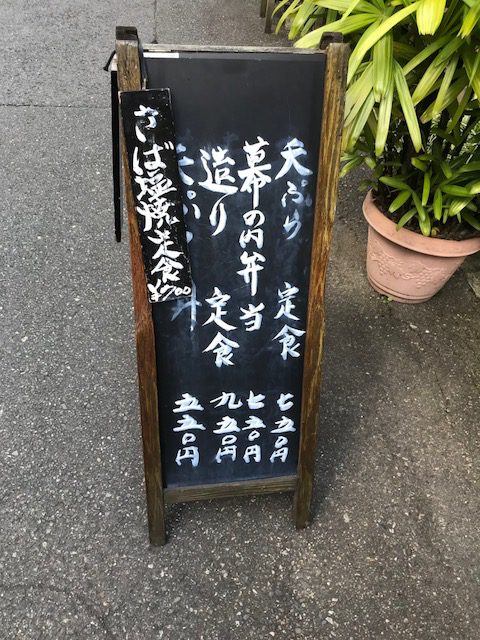 天ぷら 定食 七五〇円
幕の内弁当 七五〇円
造り 定食 九五〇円
天ぷ 丼 五五〇円
さば塩焼定食 ¥700